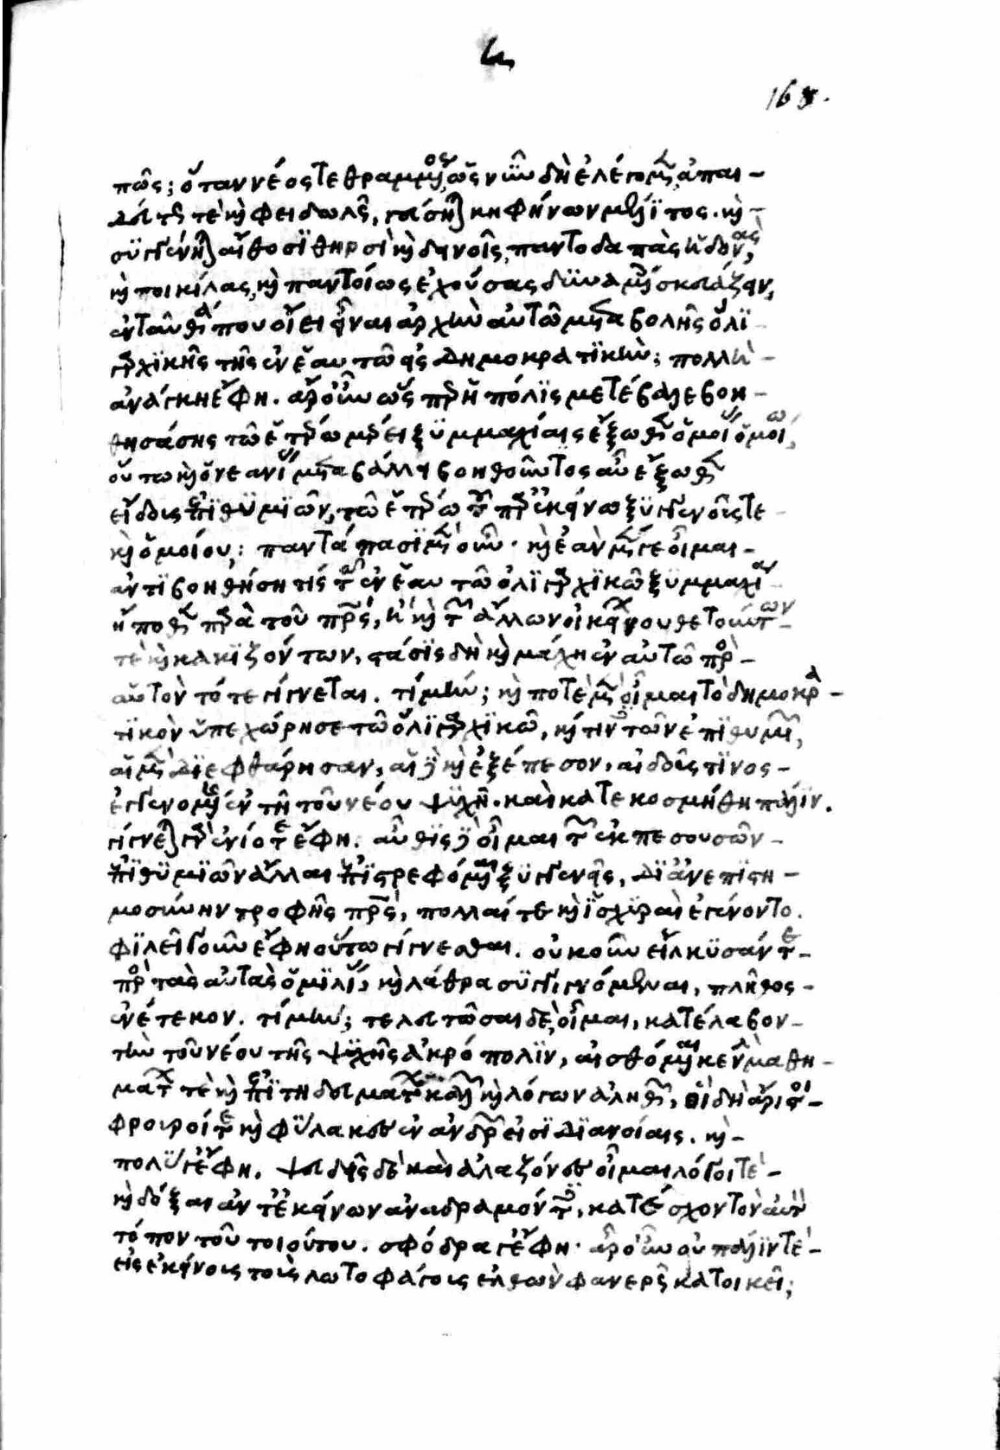 4
168.
πῶς; ὅταν νέος τεθραμμένος ὡς νῦν δὴ ἐλέγομεν, ἀπαι-
δεύτως τε καὶ φειδωλῶς, γεύσηται κηφήνων μέλιτος. καὶ
συγγένηται αἴθοσι θηρσὶ καὶ δεινοῖς, παντοδαπὰς ἡδονὰς,
καὶ ποικίλας, καὶ παντοίως ἐχούσας δυναμένοις σκευάζειν,
ἐνταῦθά που οἴει εἶναι ἀρχὴν αὐτῷ μεταβολῆς ὀλι-
γαρχικῆς τῆς ἐν ἑαυτῷ εἰς δημοκρατικήν; πολλὴ
ἀνάγκη ἔφη. ἆρ' οὖν ὥσπερ ἡ πόλις μετέβαλε βοη-
θησάσης τῷ ἑτέρῳ μέρει ξυμμαχίας ἔξωθεν ὁμοίας ὁμοίῳ,
οὕτω καὶ ὁ νεανίας μεταβάλλει βοηθοῦντος αὖ ἔξωθεν
εἴδους ἐπιθυμιῶν, τῷ ἑτέρῳ τῶν παρ' ἐκείνῳ ξυγγενοῦς τε
καὶ ὁμοίου; παντάπασι μὲν οὖν. καὶ ἐὰν μέν γε οἶμαι
ἀντιβοηθήσῃ τις τῷ ἐν ἑαυτῷ ὀλιγαρχικῷ ξυμμαχία
ἤ ποθεν παρὰ τοῦ πατρὸς, ἢ καὶ τῶν ἄλλων οἰκείων νουθετούντων
τε καὶ κακιζόντων, στάσις δὴ καὶ μάχη ἐν αὐτῷ πρὸς
αὑτὸν τότε γίγνεται. τί μήν; καὶ ποτὲ μὲν οἶμαι τὸ δημοκρα-
τικὸν ὑπεχώρησε τῷ ὀλιγαρχικῷ, καί τινες τῶν ἐπιθυμιῶν,
αἱ μὲν διεφθάρησαν, αἱ δὲ καὶ ἐξέπεσον, αἰδοῦς τινος
ἐγγενομένης ἐν τῇ τοῦ νέου ψυχῇ. καὶ κατεκοσμήθη πάλιν.
γίγνεται γὰρ ἐνίοτε ἔφη. αὖθις δὲ οἶμαι τῶν ἐκπεσουσῶν
ἐπιθυμιῶν ἄλλαι ἐπιτρεφόμεναι ξυγγενεῖς, δι' ἀνεπιστη-
μοσύνην τροφῆς πατρὸς, πολλαί τε καὶ ἰσχυραὶ ἐγένοντο.
φιλεῖ γοῦν ἔφη οὕτω γίγνεσθαι. οὐκοῦν εἵλκυσάν τε
πρὸς τὰς αὐτὰς ὁμιλίας, καὶ λάθρα συγγιγνόμεναι, πλῆθος
ἐνέτεκον. τί μήν; τελευτῶσαι δὲ, οἶμαι, κατέλαβον
τὴν τοῦ νέου τῆς ψυχῆς ἀκρόπολιν, αἰσθόμεναι κενὴν μαθη-
μάτων τε καὶ ἐπιτηδευμάτων καλῶν καὶ λόγων ἀληθῶν, οἳ δὴ ἄριστοι
φρουροί τε καὶ φύλακες ἐν ἀνδρῶν εἰσὶ διανοίαις. καὶ
πολύ γ' ἔφη. ψευδεῖς δὲ καὶ ἀλαζόνες οἶμαι λόγοι τὲ
καὶ δόξαι ἀντ' ἐκείνων ἀναδραμόντες, κατέσχον τὸν αὐτὸν
τόπον τοῦ τοιούτου. σφόδρα γ' ἔφη. ἆρ' οὖν οὐ πάλιν τὲ
εἰς ἐκείνους τοὺς λωτοφάγους ἐλθὼν φανερῶς κατοικεῖ;